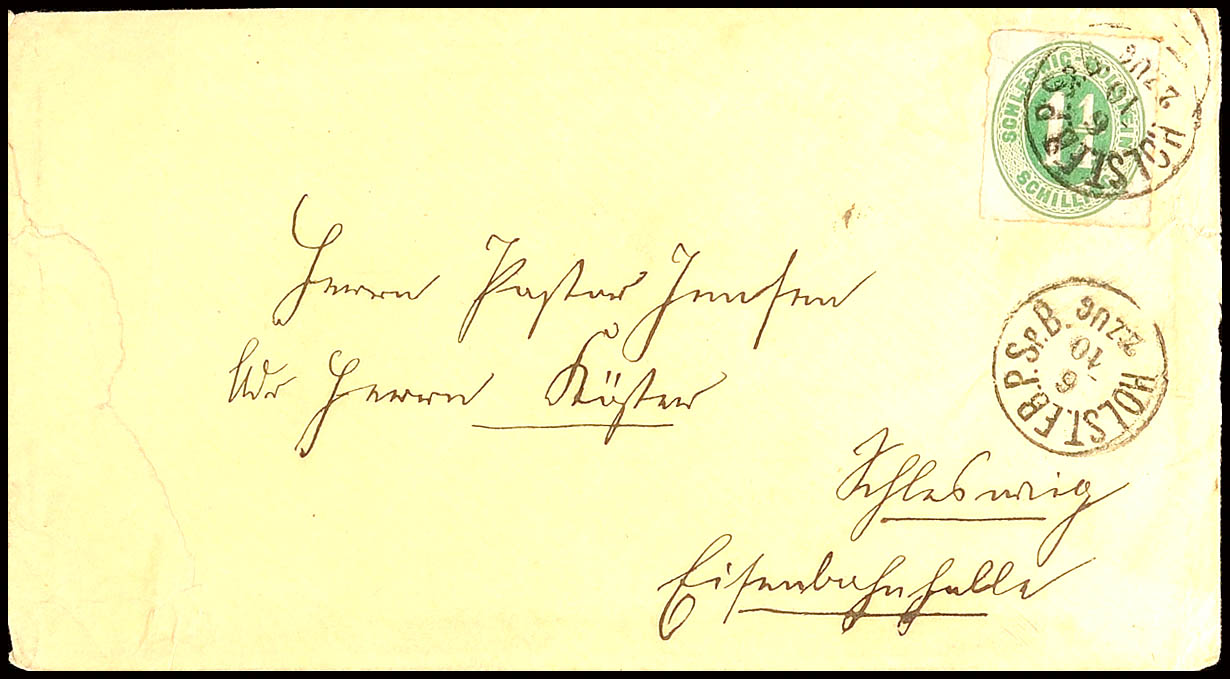 SCHLESWIG-HOLSTEIN
1¼
SCHILLING
HOLST.E.B.P.Sp.B.
6
10
2.ZUG
HOLST.E.B.P.Sp.B.
6
10
2.ZUG
Herrn Pastor Jensen
Adr Herrn Köster
Schleswig
Eisenbahnhalle